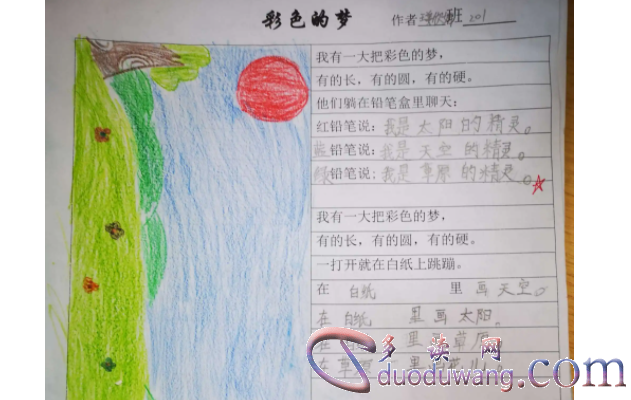 彩色的梦 作者 班 201
我有一大把彩色的梦，
有的长，有的圆，有的硬。
他们躺在铅笔盒里聊天：
红铅笔说：我是太阳的精灵。
蓝铅笔说：我是天空的精灵。
绿铅笔说：我是草原的精灵。
我有一大把彩色的梦，
有的长，有的圆，有的硬。
一打开就在白纸上跳蹦。
在 白纸 里 画 天空。
在 白纸 里 画 太阳。
在 里 草原
在草 里
多读网
duoduwang.com